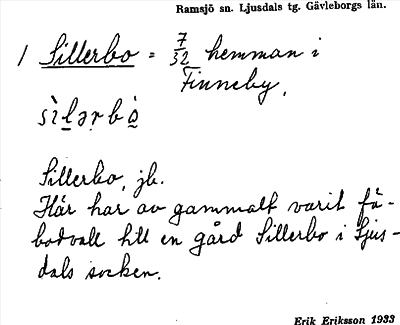 Ramsjö sn. Ljusdals tg. Gävleborgs län.
1 Sillerbo = 7/32 hemman i
Finneby.
sìlərbò
Sillerbo, jb.
Här har av gammalt varit fä-
bodvall till en gård Sillerbo i Ljus-
dals socken.
Erik Eriksson 1933